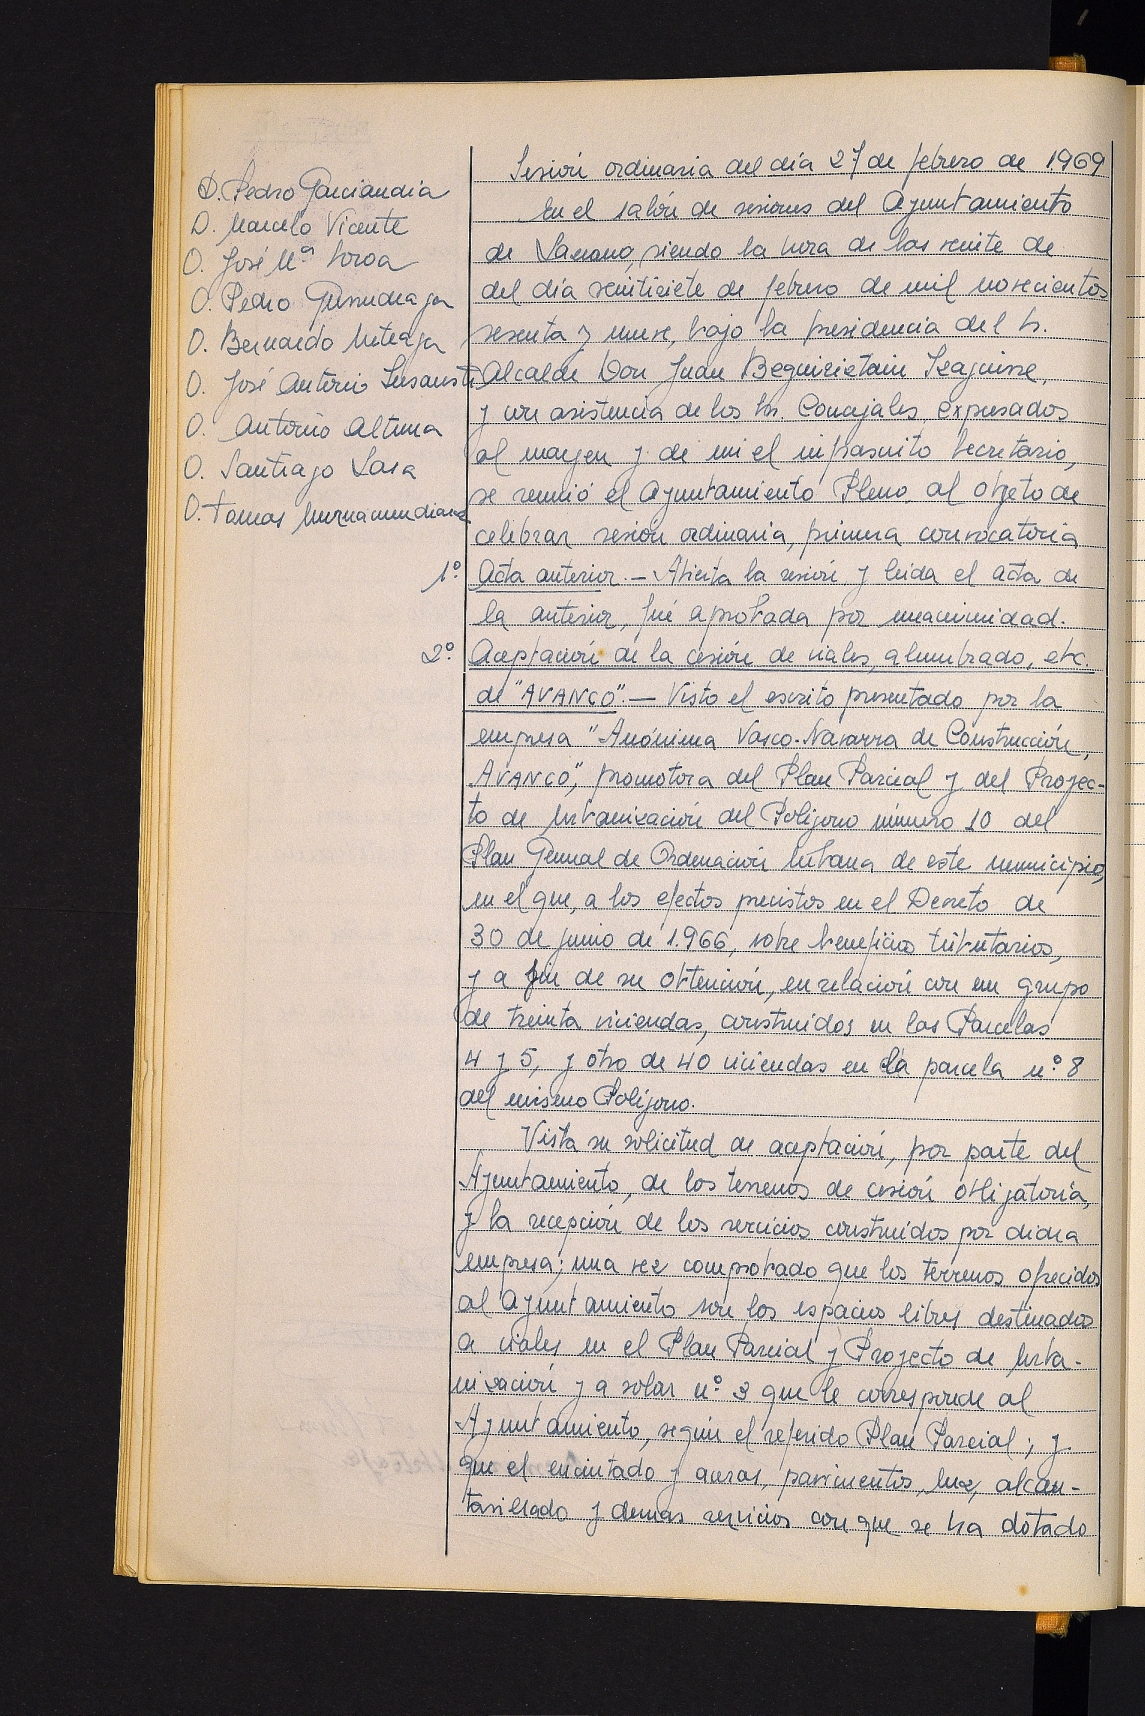 Sesión ordinaria del día 27 de febrero de 1.969
D. Pedro Garciandia
D. Marcelo Vicente
D. José Mª Soroa
D. Pedro Gurruchaga
D. Bernardo Unteaga
D. José Antonio Lusarreta
D. Antonio Altuna
D. Santiago Lasa
D. Tomas
En el salón de sesiones del Ayuntamiento
de Lazcano, siendo la hora de las veinte de
del día veintisiete de febrero de mil novecientos
sesenta y nueve, bajo la presidencia del Sr.
Alcalde Don Juan Beguiristain Izaguirre,
y con asistencia de los Srs. Concejales expresados
al margen y de mi el infrascrito Secretario,
se reunió el Ayuntamiento Pleno al objeto de
celebrar sesión ordinaria, primera convocatoria
1º. Acta anterior. - Abierta la sesión y leida el acta de
la anterior, fué aprobada por unanimidad.
2º. Aceptación de la cesión de viales, alumbrado, etc.
de "AVANCO". - Visto el escrito presentado por la
empresa "Anónima Vasco-Navarra de Construcción,
AVANCO", promotora del Plan Parcial y del Proyec-
to de Urbanización del Polígono número 10 del
Plan General de Ordenación Urbana de este municipio,
en el que, a los efectos previstos en el Decreto de
30 de junio de 1.966, sobre beneficios tributarios,
y a fin de su obtención, en relación con un grupo
de treinta viviendas, construidos en las Parcelas
4 y 5, y otro de 40 viviendas en la parcela nº. 8
del mismo Polígono.
Vista su solicitud de aceptación, por parte del
Ayuntamiento, de los terrenos de cesión obligatoria,
y la recepción de los servicios construidos por dicha
empresa; una vez comprobado que los terrenos ofrecidos
al Ayuntamiento son los espacios libres destinados
a viales en el Plan Parcial y Proyecto de Urba-
nización y a solar nº. 3 que le corresponde al
Ayuntamiento, según el referido Plan Parcial; y
que el encintado y aceras, pavimentos, luz, alcan-
tarillado y demas servicios con que se ha dotado